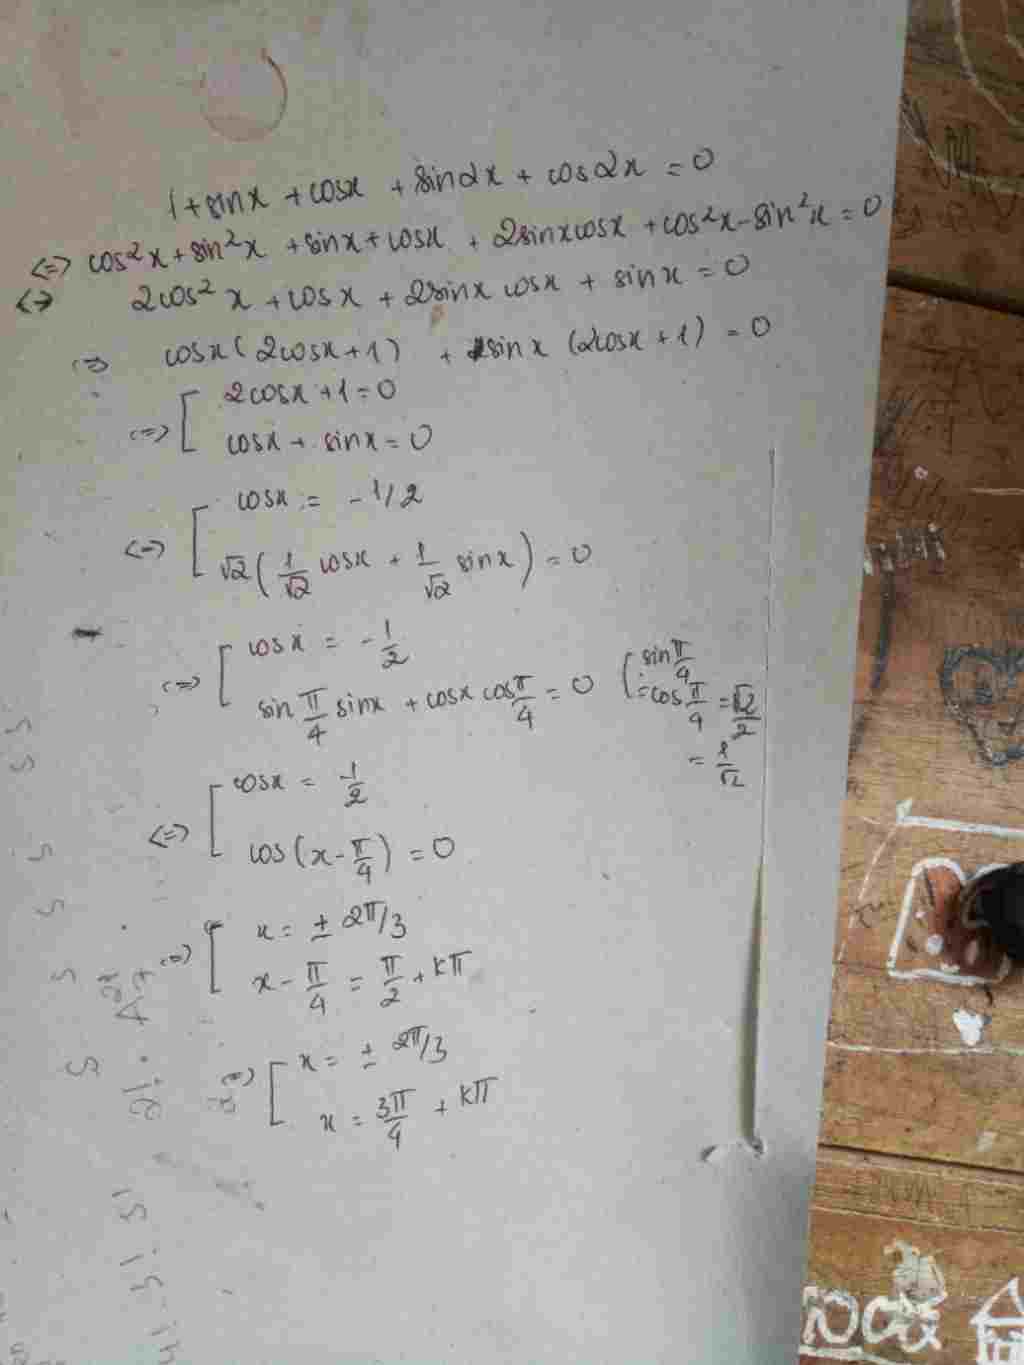 1 + sinx + cosx + sin2x + cos2x = 0
<=> cos²x + sin²x + sinx + cosx + 2sinxcosx + cos²x - sin²x = 0
<=> 2cos²x + cosx + 2sinx cosx + sinx = 0
<=> cosx(2cosx+1) + sinx (2cosx+1) = 0
<=> [ 2cosx + 1 = 0
cosx + sinx = 0
<=> [ cosx = -1/2
√2(1/√2 cosx + 1/√2 sinx) = 0
<=> [ cosx = -1/2
sin π/4 sinx + cosx cos π/4 = 0 [ sin π/4
= cos π/4 = √2/2
= 1/√2
<=> [ cosx = -1/2
cos(x - π/4) = 0
<=> [ x = ± 2π/3
x - π/4 = π/2 + kπ
<=> [ x = ± 2π/3
x = 3π/4 + kπ